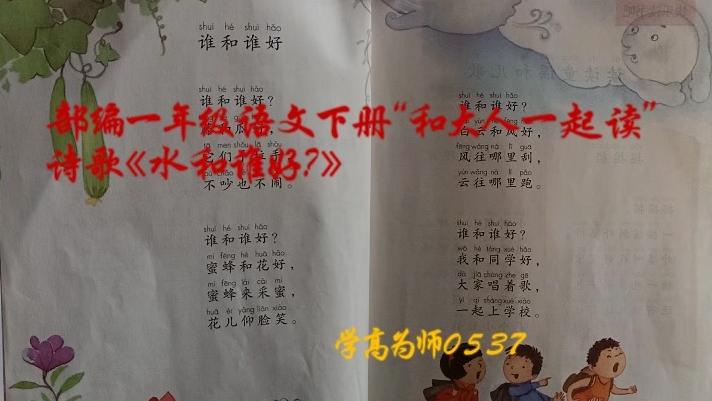 shuí hé shuí hǎo
谁和谁好
shuí hé shuí hǎo
谁和谁好?
瓜好,
它们手
不吵也不闹。
shuí hé shuí hǎo
谁和谁好?
mì fēng hé huā hǎo
蜜蜂和花好,
mì fēng lái cǎi mì
蜜蜂来采蜜,
huā ér yǎng liǎn xiào
花儿仰脸笑。
shuí hé shuí hǎo
谁和谁好?
白云和风好,
fēng wǎng nǎ lǐ guā
风往哪里刮,
yún wǎng nǎ lǐ pǎo
云往哪里跑。
shuí hé shuí hǎo
谁和谁好?
wǒ hé tóng xué hǎo
我和同学好,
dà jiā chàng zhe gē
大家唱着歌,
yì qǐ shàng xué xiào
一起上学校。
部编一年级语文下册“和大人一起读”
诗歌《水和谁好?》
学高为师0537